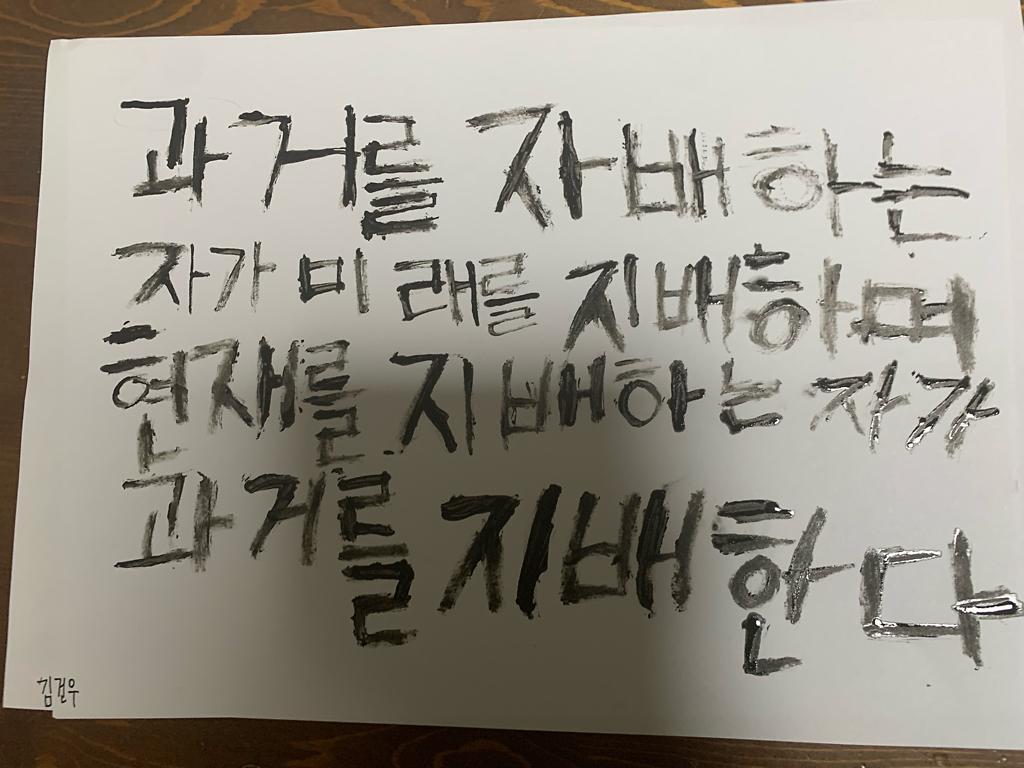 과거를 자배하는
자가 미래를 지배하며
현재를 지배하는 자가
과거를 지배한다
김건우